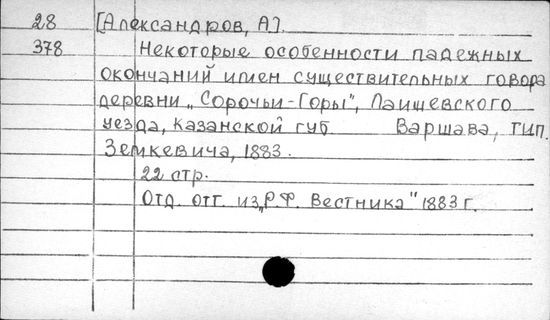 28 [Александров, А].
378 Некоторые особенности падежных
окончаний имен существительных говора
деревни „Сорочьи-Горы", Лаишевского
уезда, Казанской губ Варшава, тип.
Земкевича, 1883.
22 стр.
Отд. отт. из„Р.Ф. Вестника" 1883 г.